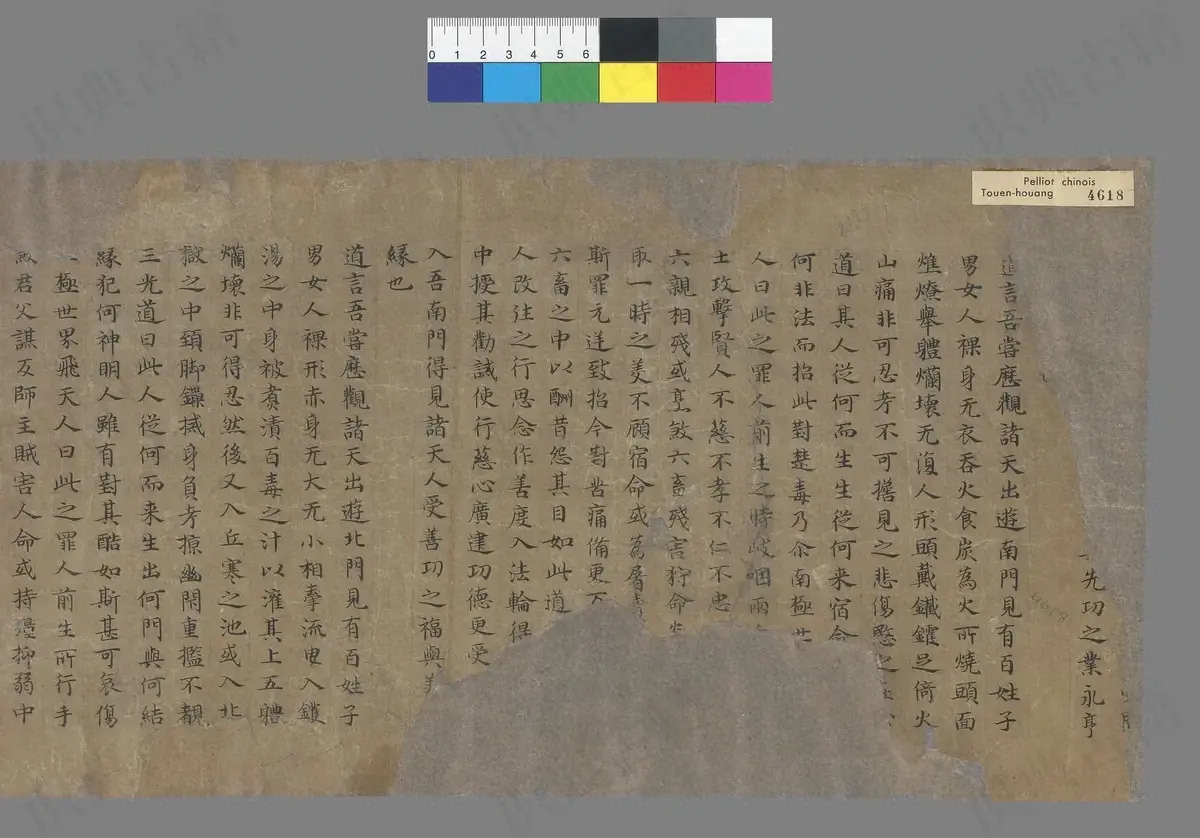 0 1 2 3 4 5 6
Pelliot chinois
Touen-houang 4618
先功之業永亨
道言吾嘗歷觀諸天出遊南門見有百姓子
男女人裸身无衣吞火食炭為火所燒頭面
燋燎舉體爛壞无復人形頭戴鐵鑊足倚火
山痛非可忍考不可擔見之悲傷愍之
道曰其人從何而生生從何来宿
何非法而招此對楚毒乃尒南極
人曰此之罪人前生之時
土攻擊賢人不慈不孝不仁不忠
六親相殘或烹煞六畜殘害狩命
取一時之美不顧宿命或為屠
斯罪元送致招今對苦痛備更
六畜之中以酬昔怨其目如此道
人改往之行思念作善度入法輪得
中授其勸誡使行慈心廣建功德更受
入吾南門得見諸天人受善功之福與
緣也
道言吾嘗歷觀諸天出遊北門見有百姓子
男女人裸形赤身无大无小相牽流曳入鑊
湯之中身被煮漬百毒之汁以灌其上五體
爛壞非可得忍然後又入丘寒之池或入北
獄之中頸脚鏁械身負考掠幽閇重檻不覩
三光道曰此人從何而来生出何門與何結
緣犯何神明人雖有對其酷如斯甚可哀傷
極世界飛天人曰此之罪人前生所行手
君父謀反師主賊害人命或持彊抑弱中
識典古籍